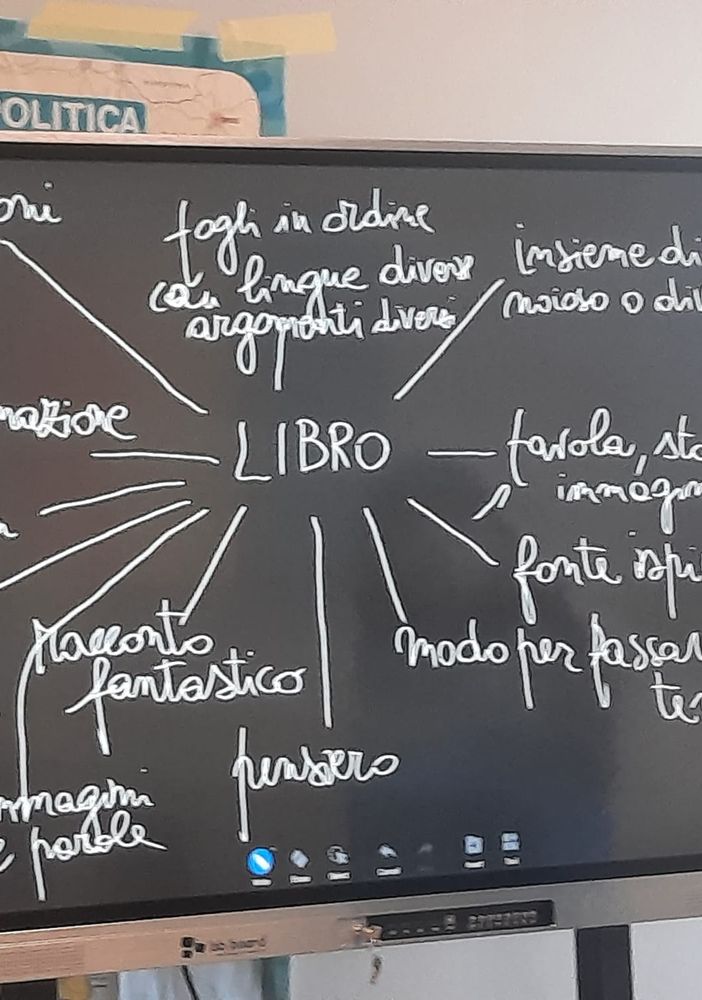 POLITICA
oni
fogli in ordine
con lingue diverse
argomenti diversi
insieme di
noioso o div
mazione
LIBRO
favola, sto
immagin
fonte ispi
Racconto
fantastico
modo per passar
te
pensiero
mmagini
e parole